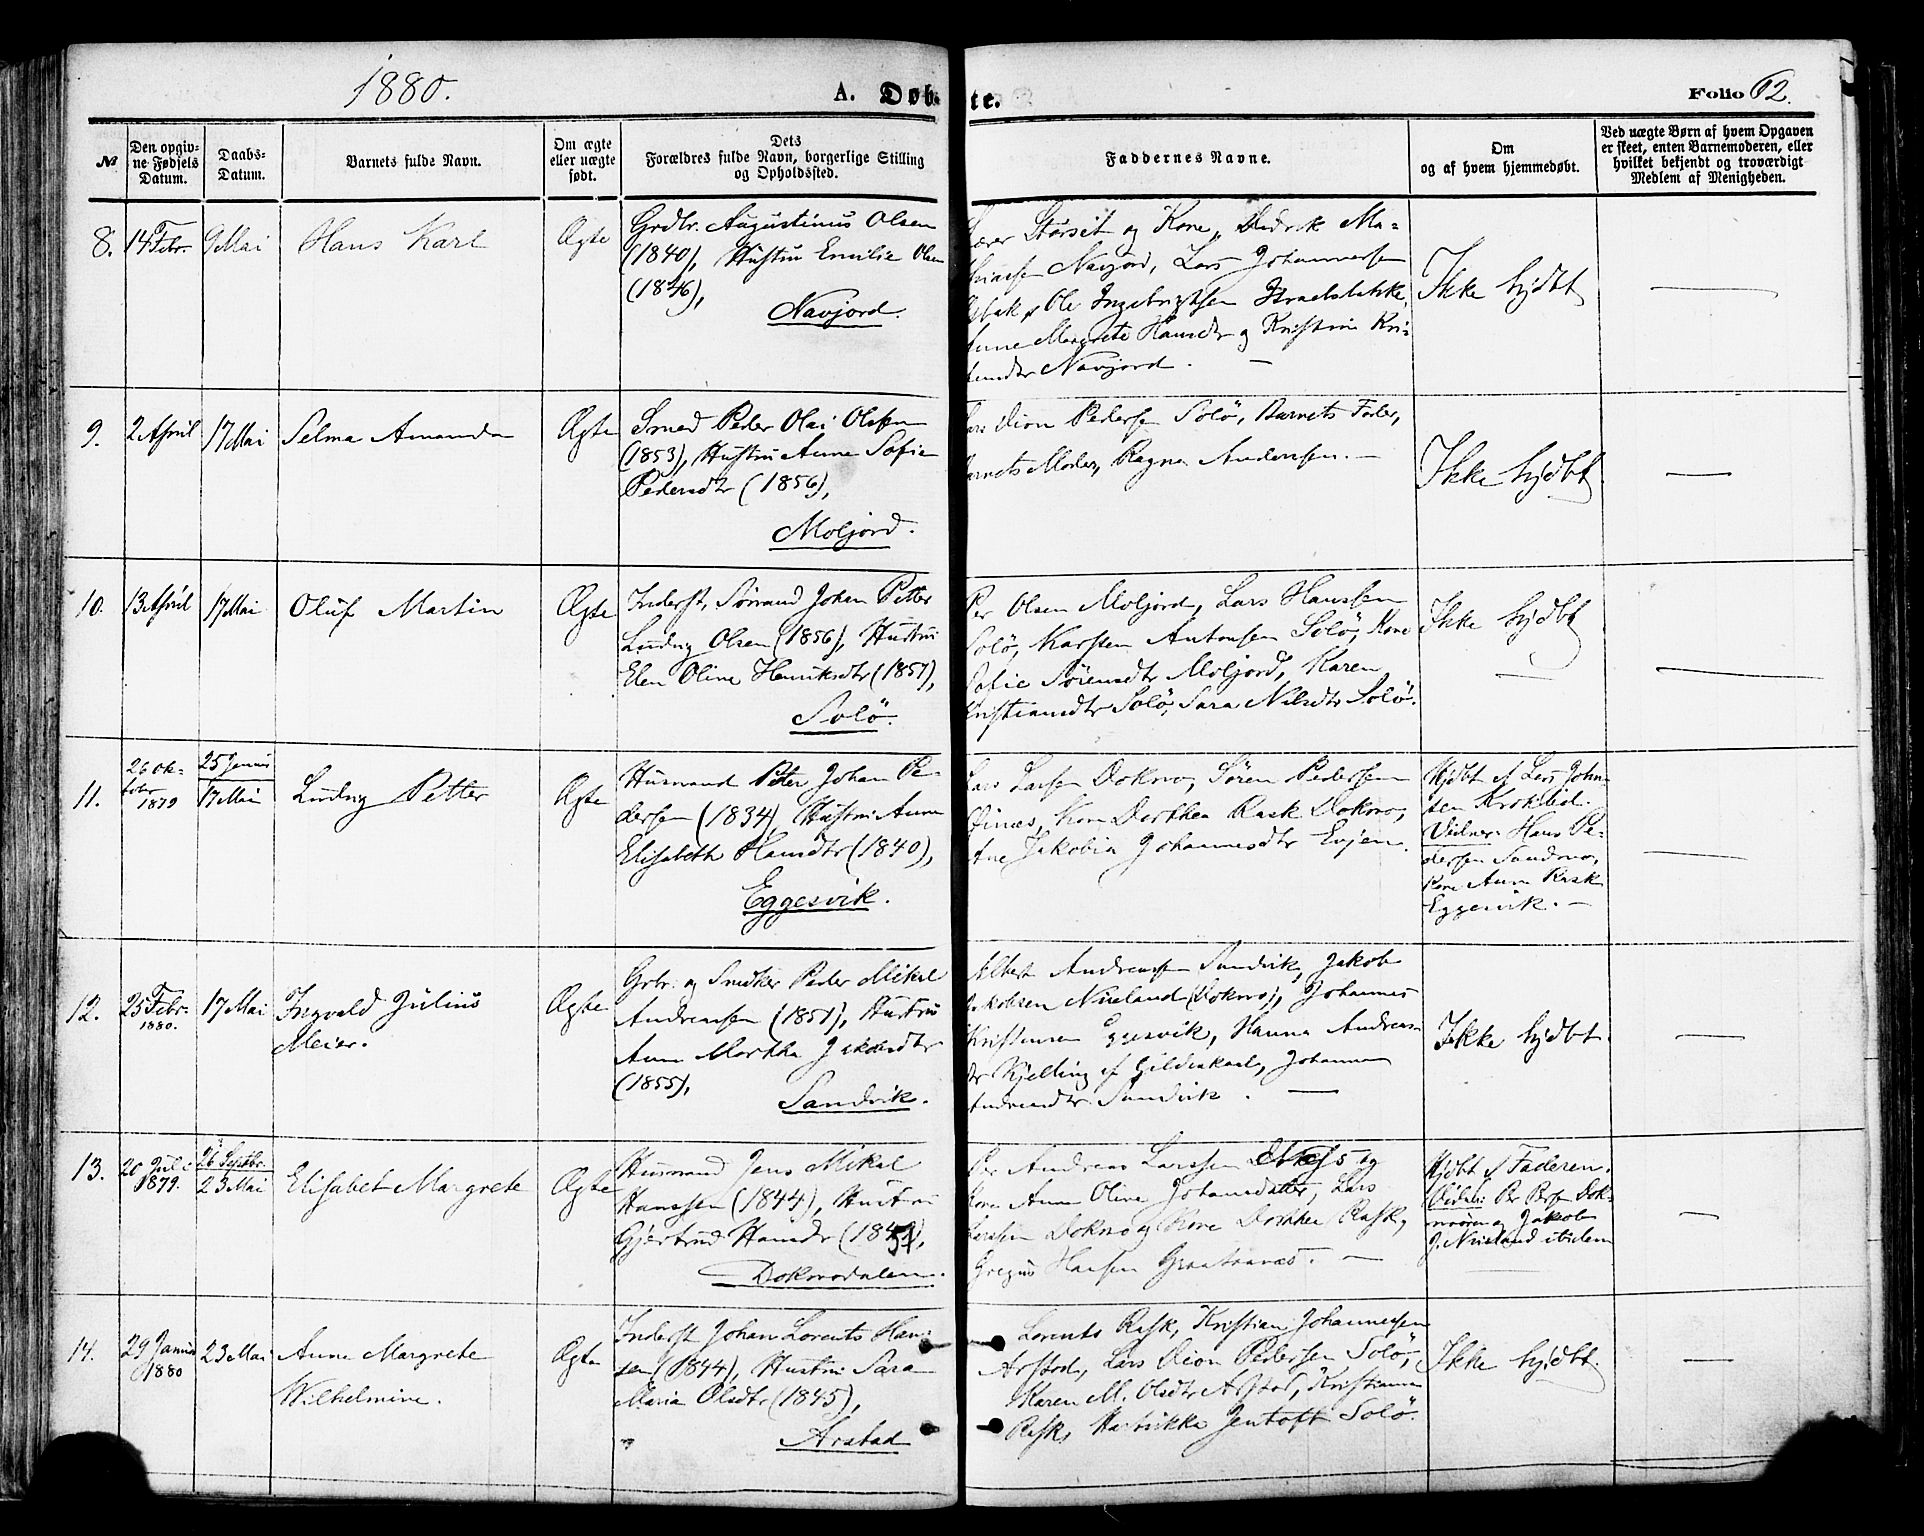 1880.
A. Døb-
te.
Folio 62.
№
Den opgiv-
ne Fødsels
Datum.
Daabs-
Datum.
Barnets fulde Navn.
Om ægte
eller uægte
født.
Dets
Forældres fulde Navn, borgerlige Stilling
og Opholdssted.
Faddernes Navne.
Om
og af hvem hjemmedøbt.
Ved uægte Børn af hvem Opgaven
er skeet, enten Barnemoderen, eller
hvilket bekjendt og troværdigt
Medlem af Menigheden.
8.
14 Febr.
9 Mai
Hans Karl
Ægte
Grdbr. Augustinus Olsen
(1840), Hustru Emilie Olsen
(1846),
Navjord.
Storset og Kone, Didrik Ma-
Navjord, Lars Johannessen
Ole Ingebrigtsen
Margrete Hansdtr og Kristine Kri-
Navjord. —
Ikke hjdbt
—
9.
2 April
17 Mai
Selma Amanda
Ægte
Smed Peder Olai Olsen
(1853), Hustru Anne Sofie
Pedersdtr (1856),
Moljord.
Lars Dion Pedersen Solö, Barnets Fader,
Barnets Moder, Ragna Andersen. —
Ikke hjdbt.
—
10.
13 April
17 Mai
Oluf Martin
Ægte
Inderst, Johan Petter
Ludvig Olsen (1856), Hustru
Elen Oline Henriksdtr (1857),
Solö.
Per Olsen Moljord, Lars Hanssen
Solö, Karsten Antonsen Solö, Kone
Sofie Sörensdtr Moljord, Karen
Kristiansdtr Solö, Sara Nilsdtr Solö.
Ikke hjdbt
—
—
11.
26 Ok-
tober
1879
25 Januar
17 Mai
Ludvig Petter
Ægte
Husmand Peter Johan Pe-
dersen (1834), Hustru Anne
Elisabeth Hansdtr (1840),
Eggesvik.
Lars Larsen Dokmo, Sören Pedersen
Kone Dorthea Rask Dokmo,
Jakobia Johannesdtr Evjen.
Hjdbt af Lars John-
sen Kroklid.
Vidner: Hans Pe-
dersen Sandmo,
Kone Anna Rask
Eggesvik. —
—
12.
25 Febr.
1880.
17 Mai
Ingvald Julius
Meier.
Ægte
Grbr. og Snedker Peder Mikal
Andreassen (1851), Hustru
Anne Martha Jakobsdtr
(1855),
Sandvik.
Albert Andreassen Sandvik, Jakob
Jakobsen Niseland (Dokmo), Johannes
Kristensen Eggesvik, Hanna Andreas-
dtr Kjelling af Gildeskaal, Johanna
Andreasdtr Sandvik. —
Ikke hjdbt.
—
13.
20 Juli
1879.
26 Septbr.
23 Mai
Elisabet Margrete
Ægte
Husmand Jens Mikal
Hanssen (1844), Hustru
Gjertrud Hansdr (1851),
Dokmodalen.
Per Andreas Larssen og
Kone Anne Oline Johansdatter, Lars
Larssen Dokmo og Kone Dorthea Rask,
Gregus Hansen. —
Hjdbt af Faderen.
Vidner: Per Dok-
moen og Jakob
J. Niseland ibidem
—
14.
29 Januar
1880
23 Mai
Anne Margrete
Wilhelmine.
Ægte
Inderst Johan Lorents Han-
sen (1844), Hustru Sara
Maria Olsdtr (1845),
Arstad
Lorents Rask, Kristian Johannessen
Arstad, Lars Dion Pedersen Solö,
Karen M. Olsdtr Arstad, Kristianna
Rask, Jentoft Solö.
Ikke hjdbt.
—